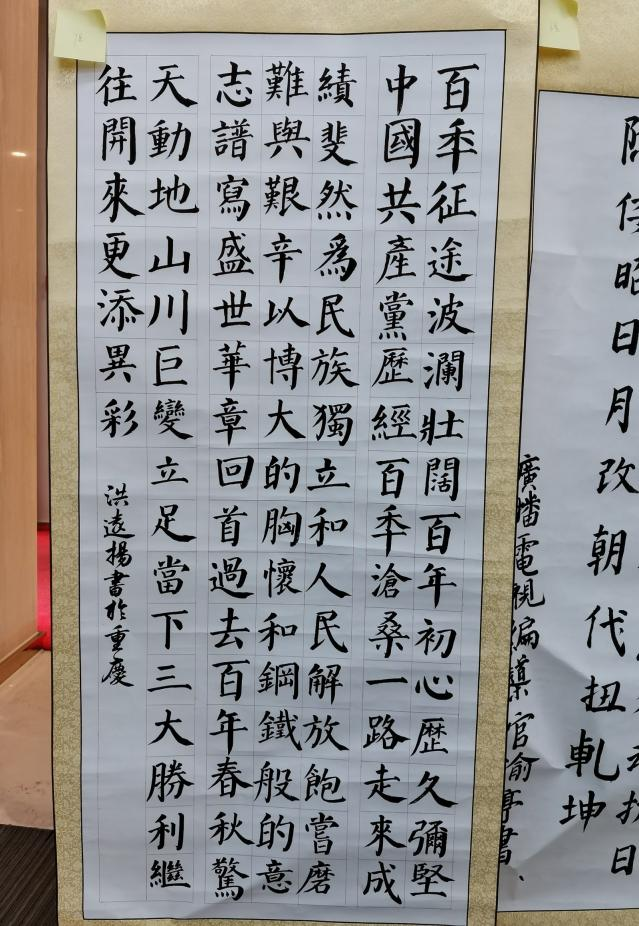 百年征途波瀾壯闊百年初心歷久彌堅
中國共產黨歷經百年滄桑一路走來成
績斐然為民族獨立和人民解放飽嘗磨
難與艱辛以博大的胸懷和鋼鐵般的意
志譜寫盛世華章回首過去百年春秋驚
天動地山川巨變立足當下三大勝利繼
往開來更添異彩
洪遠揚書於重慶
日
昭日月改朝代扭乾坤
廣播電視編導官渝亭書